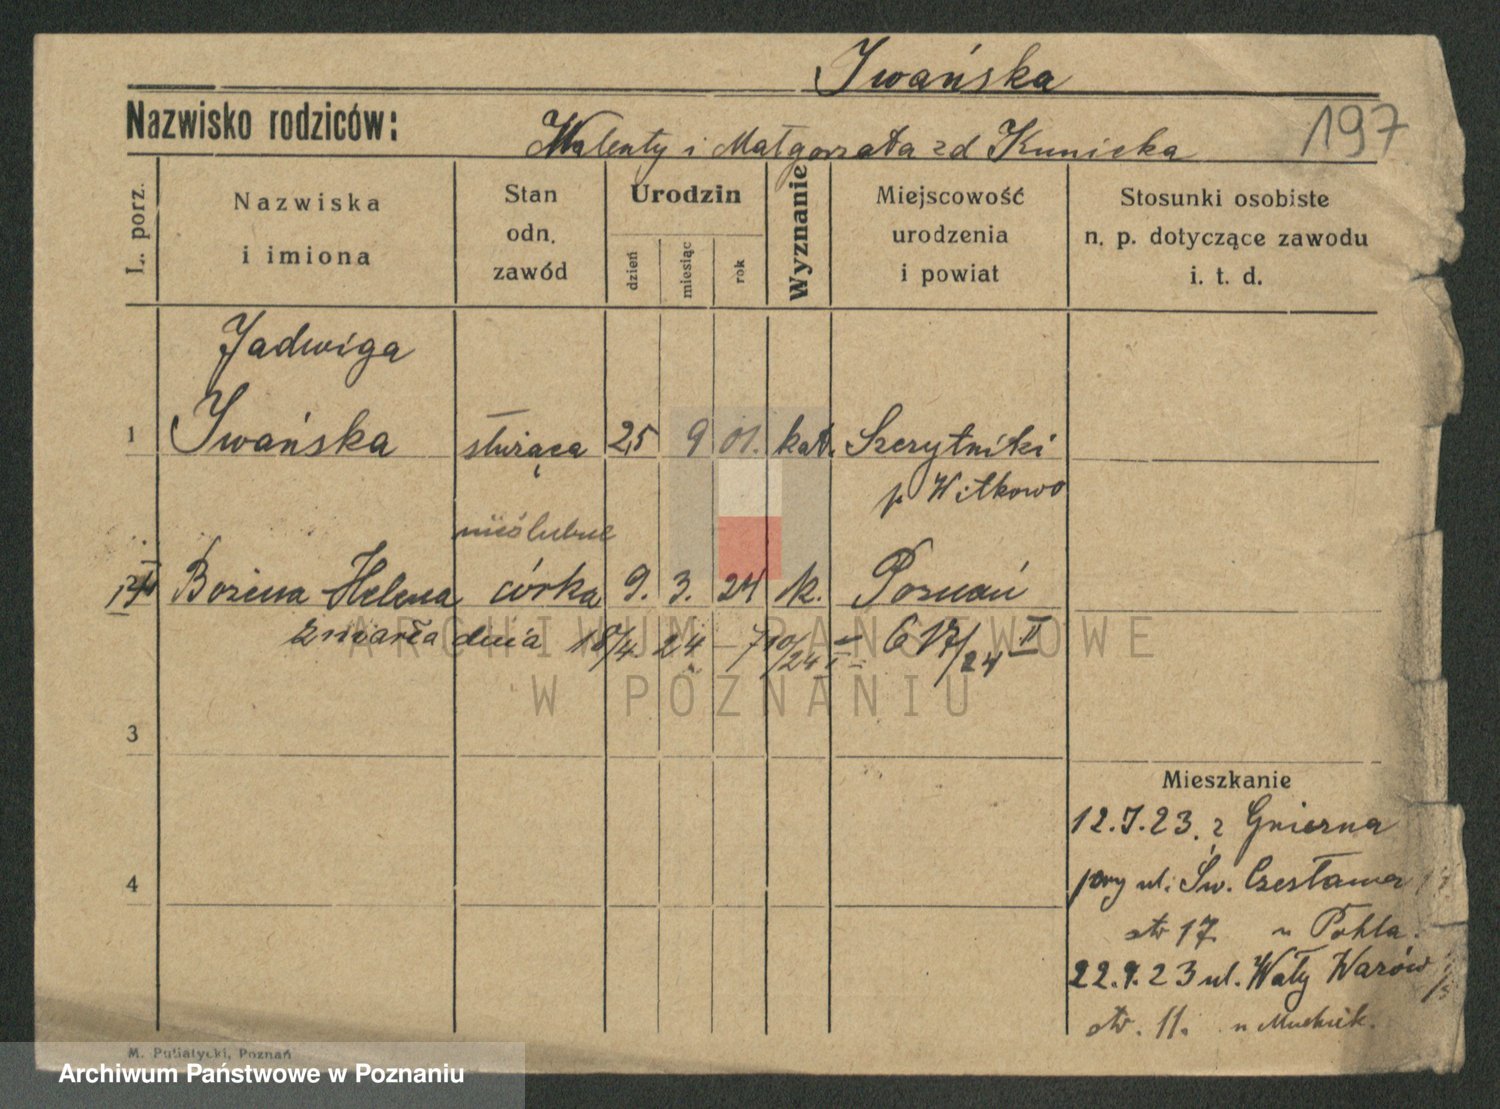 Iwańska
Nazwisko rodziców:
Walenty i Małgorzata zd Kunicka
197
L. porz.
Nazwiska
i imiona
Stan
odn.
zawód
Urodzin
dzień
miesiąc
rok
Wyznanie
Miejscowość
urodzenia
i powiat
Stosunki osobiste
n. p. dotyczące zawodu
i. t. d.
Jadwiga
1 Iwańska służąca 25 9 01. kat. Szczytniki
p Witkowo
nieślubne
Bożena Helena córka 9. 3. 24 k. Poznań
zmarła dnia 18/4 24 617/24 II
3
4
Mieszkanie
12.7.23. z Gniezna
przy ul. Św. Czesława
str 17 u Pohla.
22.9.23 ul. Wały Wazów
str. 11. u
ARCHIWUM PAŃSTWOWE
W POZNANIU
M. Putiatycki, Poznań
Archiwum Państwowe w Poznaniu